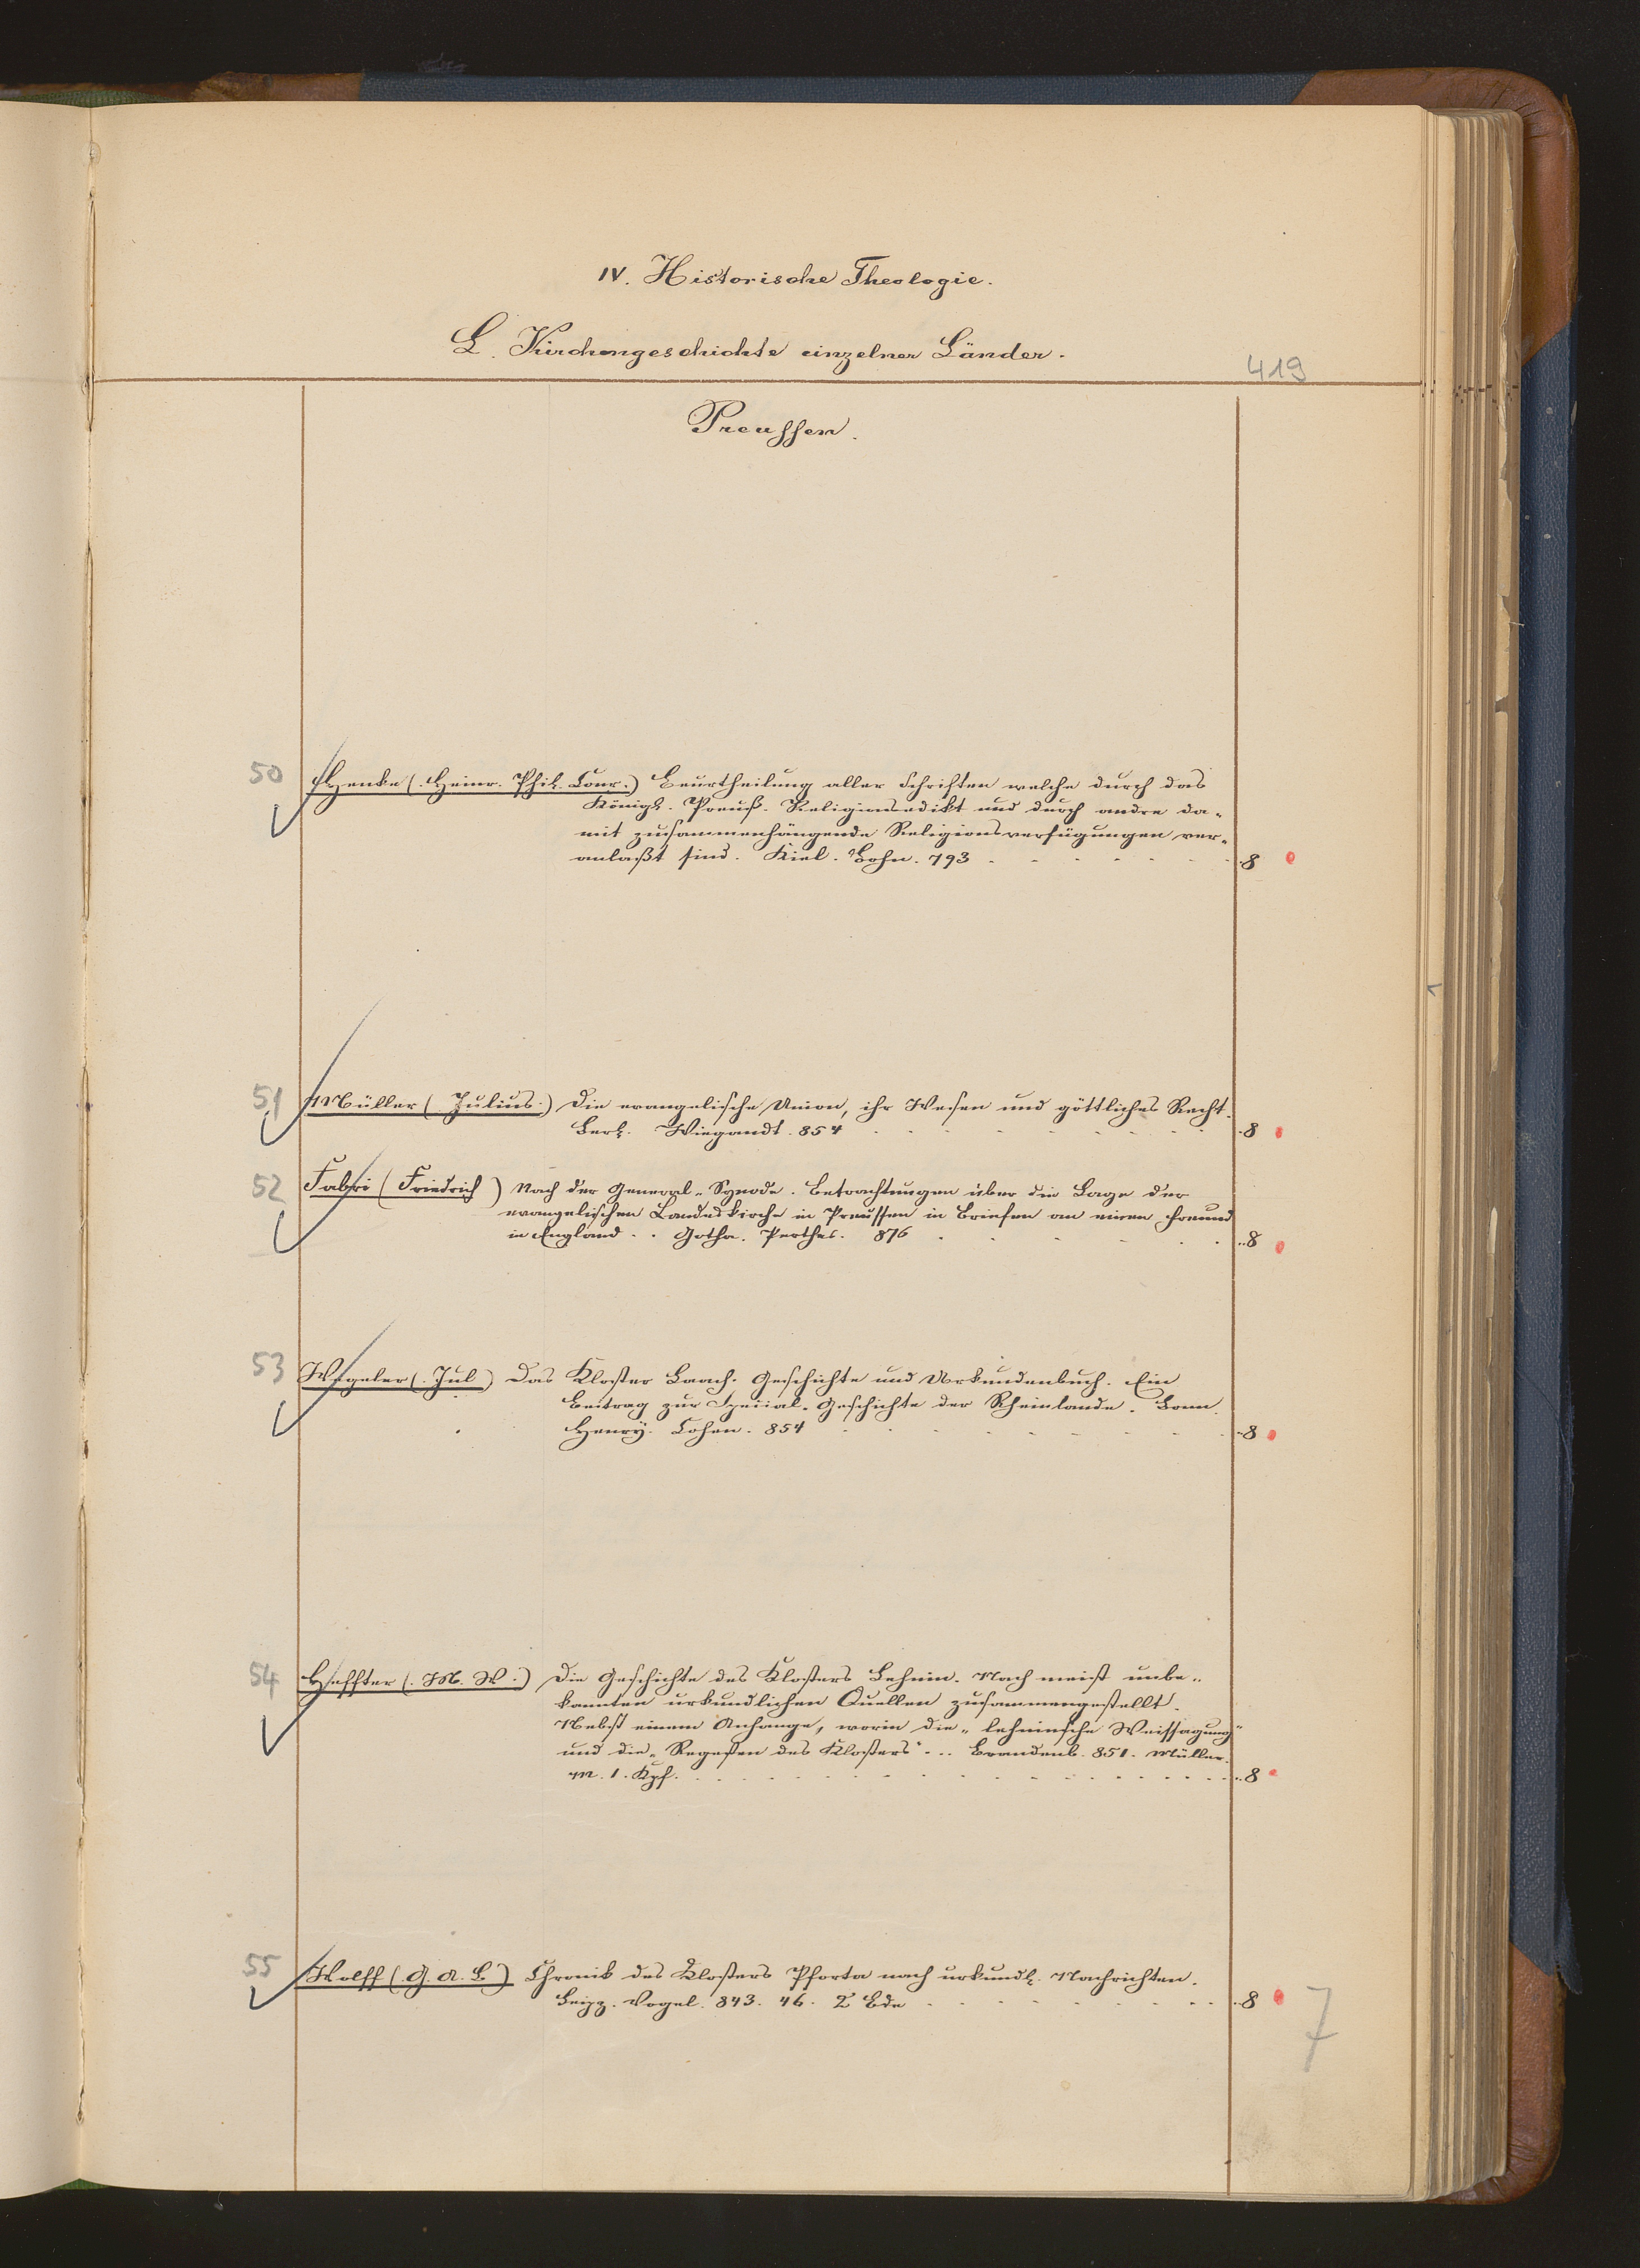 IV. Historische Theologie.
L. Kirchengeschichte einzelner Länder.
419
Preussen.
50 Henke (Heinr. Phil. Conr.) Beurtheilung aller Schriften welche durch das
Königl. Preuß. Religionsedikt und durch andre da-
mit zusammenhängende Religionsverfügungen ver-
anlaßt sind. Kiel. Bohn. 793 8
51 Müller (Julius) Die evangelische Union, ihr Wesen und göttliches Recht.
Berl. Wiegandt. 854 8
52 Fabri (Friedrich) Nach der General-Synode. Betrachtungen über die Lage der
evangelischen Landeskirche in Preussen in Briefen an einen Freund
in England. Gotha. Perthes. 876 8
53 Wegeler (Jul) Das Kloster Laach. Geschichte und Urkundenbuch. Ein
Beitrag zur Special-Geschichte der Rheinlande. Bonn.
Henry. Cohen. 854 8
54 Heffter (M. W.) Die Geschichte des Klosters Lehnin. Nach meist unbe-
kannten urkundlichen Quellen zusammengestellt.
Nebst einem Anhange, worin die „lehninsche Weissagung"
und die „Regesten des Klosters" ... Brandenb. 851. Müller.
m. 1. Kpf. 8
55 Wolff (G. A. B.) Chronik des Klosters Pforta nach urkundl. Nachrichten.
Leipz. Vogel. 843. 46. 2 Bde 8
7